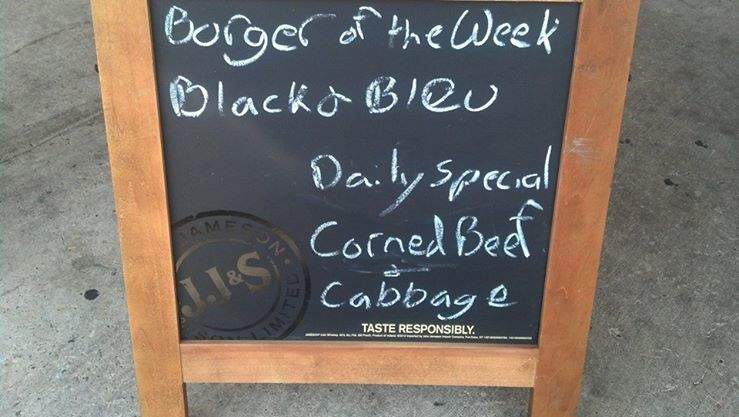 Burger of the Week
Black & Bleu
Daily Special
Corned Beef
&
Cabbage
JAMESON
J.J&S
LIMITED
TASTE RESPONSIBLY.